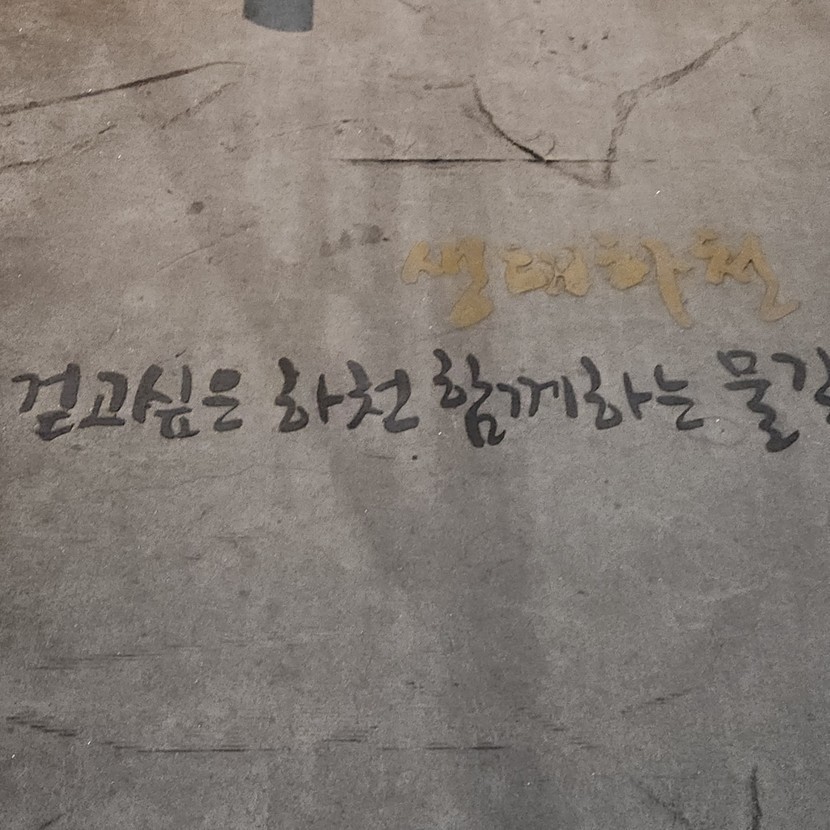 생태하천
걷고싶은 하천 함께하는 물길